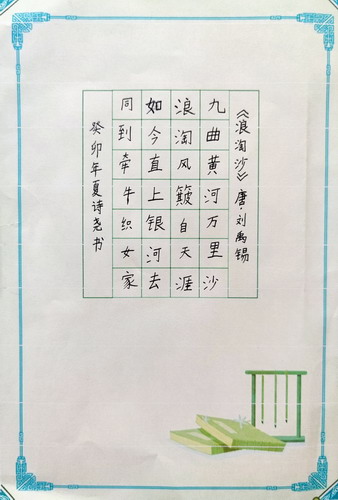 《浪淘沙》唐·刘禹锡
九曲黄河万里沙
浪淘风簸自天涯
如今直上银河去
同到牵牛织女家
癸卯年夏诗尧书